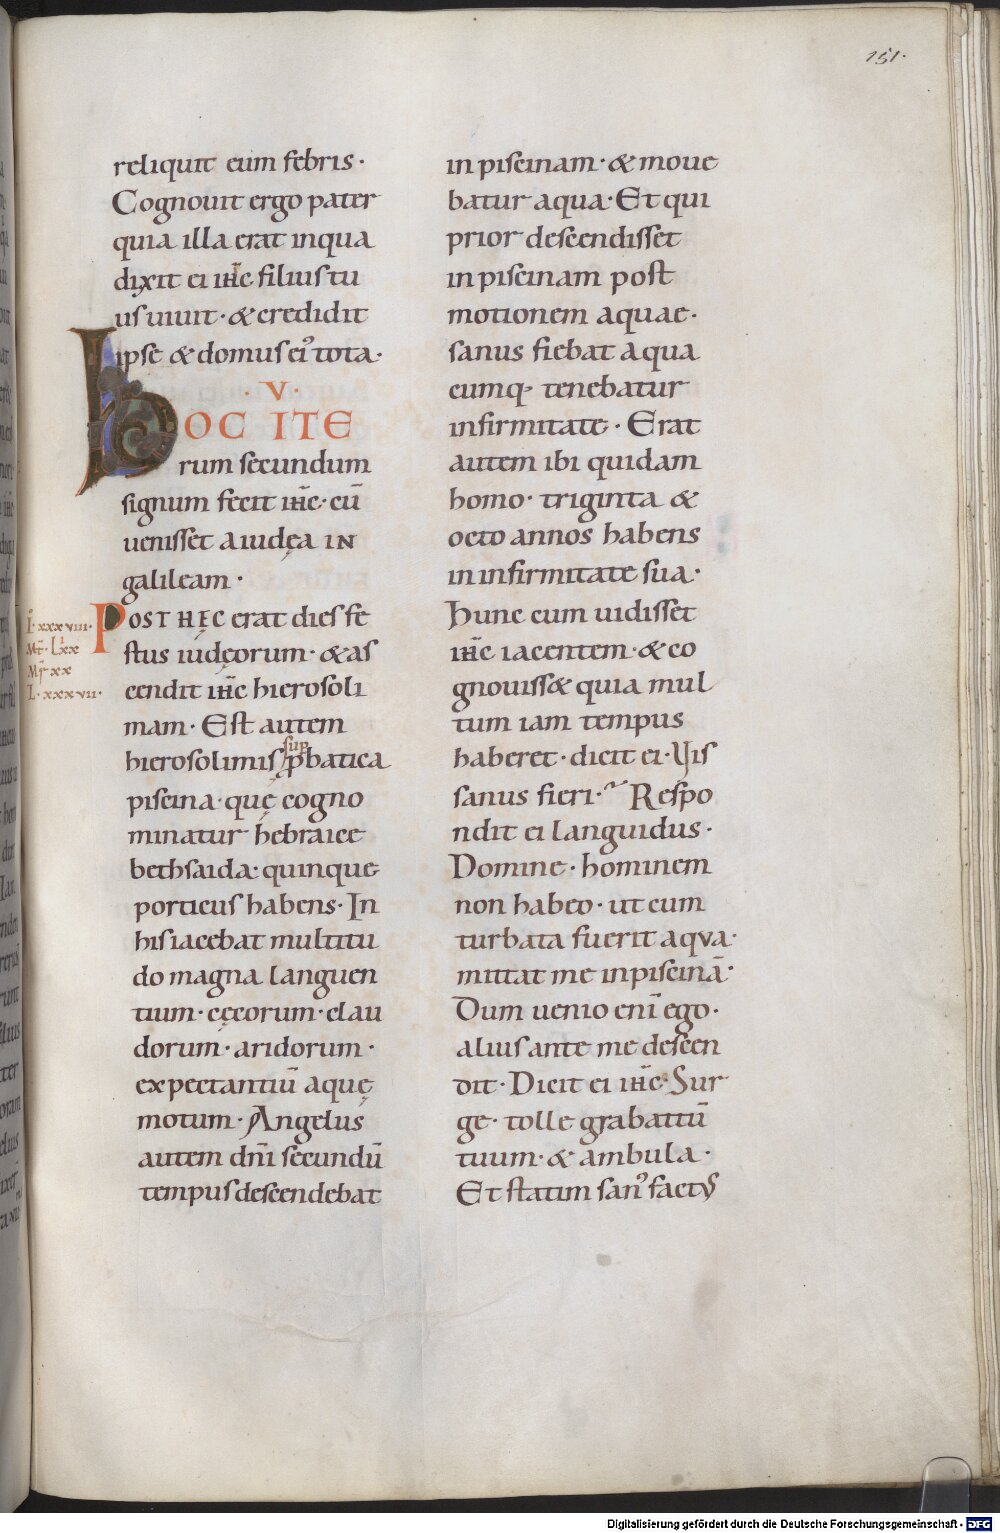 151.
reliquit eum febris·
Cognouit ergo pater
quia illa erat inqua
dixit ei ihc̄ filius tu
us uiuit·& credidit
ipse & domus ei᾿ tota·
·V·
hOC ITE
rum secundum
signum fecit ihc̄·cū
uenisset aiudęa IN
galileam·
POST HĘC erat dies fe
stus iudęorum·&as
cendit ihc̄ hierosoli
mam·Est autem
hierosolimis ꝓbatica
sup
piscina·quę cogno
minatur hebraice
bethsaida·quinque
porticus habens·In
his iacebat multitu
do magna languen
tium·cęcorum·clau
dorum·aridorum·
expectantiū aquę
motum·Angelus
autem dn̄i secundū
tempus descendebat
I·xxxviii·
Mt̄·Lxx
Mr̄·xx
L·xxxvii·
in piscinam·& moue
batur aqua·Et qui
prior descendisset
in piscinam post
motionem aquae·
sanus fiebat aqua
cumq· tenebatur
infirmitate·Erat
autem ibi quidam
homo·triginta &
octo annos habens
in infirmitate sua·
Hunc cum uidisset
ihc̄ iacentem·& co
gnouiss& quia mul
tum iam tempus
haberet·dicit ei·Uis
sanus fieri·~ Respo
ndit ei languidus·
Domine·hominem
non habeo·ut cum
turbata fuerit aqua·
mittat me inpiscinā·
Dum uenio enī ego·
alius ante me descen
dit·Dicit ei ihc̄·Sur
ge·tolle grabattū
tuum·& ambula·
Et statim san᾿ factus